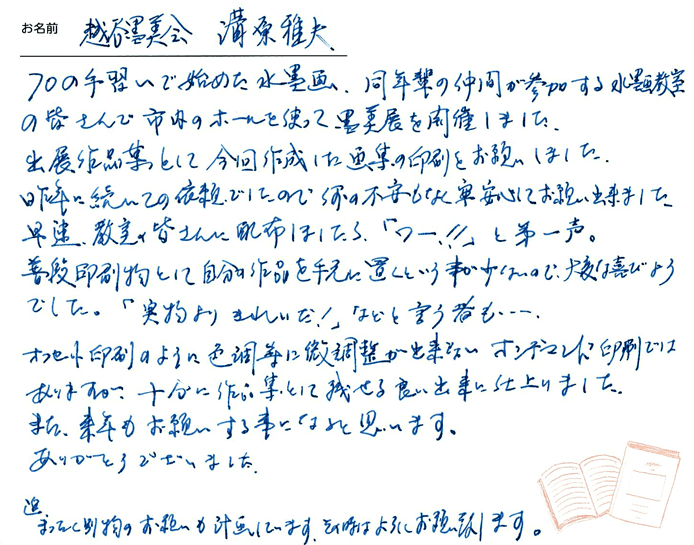 お名前 越谷墨美会 溝原雅夫
70の手習いで始めた水墨画、同年輩の仲間が参加する水墨画教室
の皆さんで市内のホールを使って墨美展を開催しました。
出展作品集として今回作成した画集の印刷をお願いしました。
昨年に続いての依頼でしたので何の不安もなく安心してお願い出来ました
早速、教室の皆さんに配布しましたら、「ワー!!」と第一声。
普段印刷物として自分の作品を手元に置くという事が少ないので、大変な喜びよう
でした。「実物よりきれいだ!」などと言う者も…。
オフセット印刷のように色調等に微調整が出来ないオンデマンド印刷では
ありますが、十分に作品集として残せる良い出来に仕上りました。
また、来年もお願いする事になると思います。
ありがとうございました。
追 まったく別物のお願いも計画しています、その時はよろしくお願い致します。